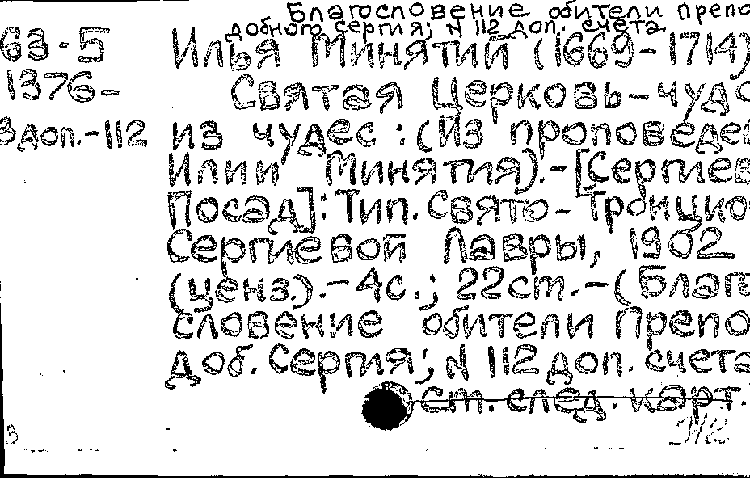 Благословение обители препо
добного Сергия; N 112 доп. счета
63-5
Илья Минятий (1669-1714)
1376-
Святая Церковь-чудо
3доп.-112
из чудес: (Из проповедей
Илии Минятия).-[Сергиев
Посад]: Тип. Свято-Троицко
Сергиевой Лавры, 1902
(ценз.).-4с.; 22см.-(Благо
словение обители Препо
доб. Сергия; N 112 доп. счета
см. след. карт.